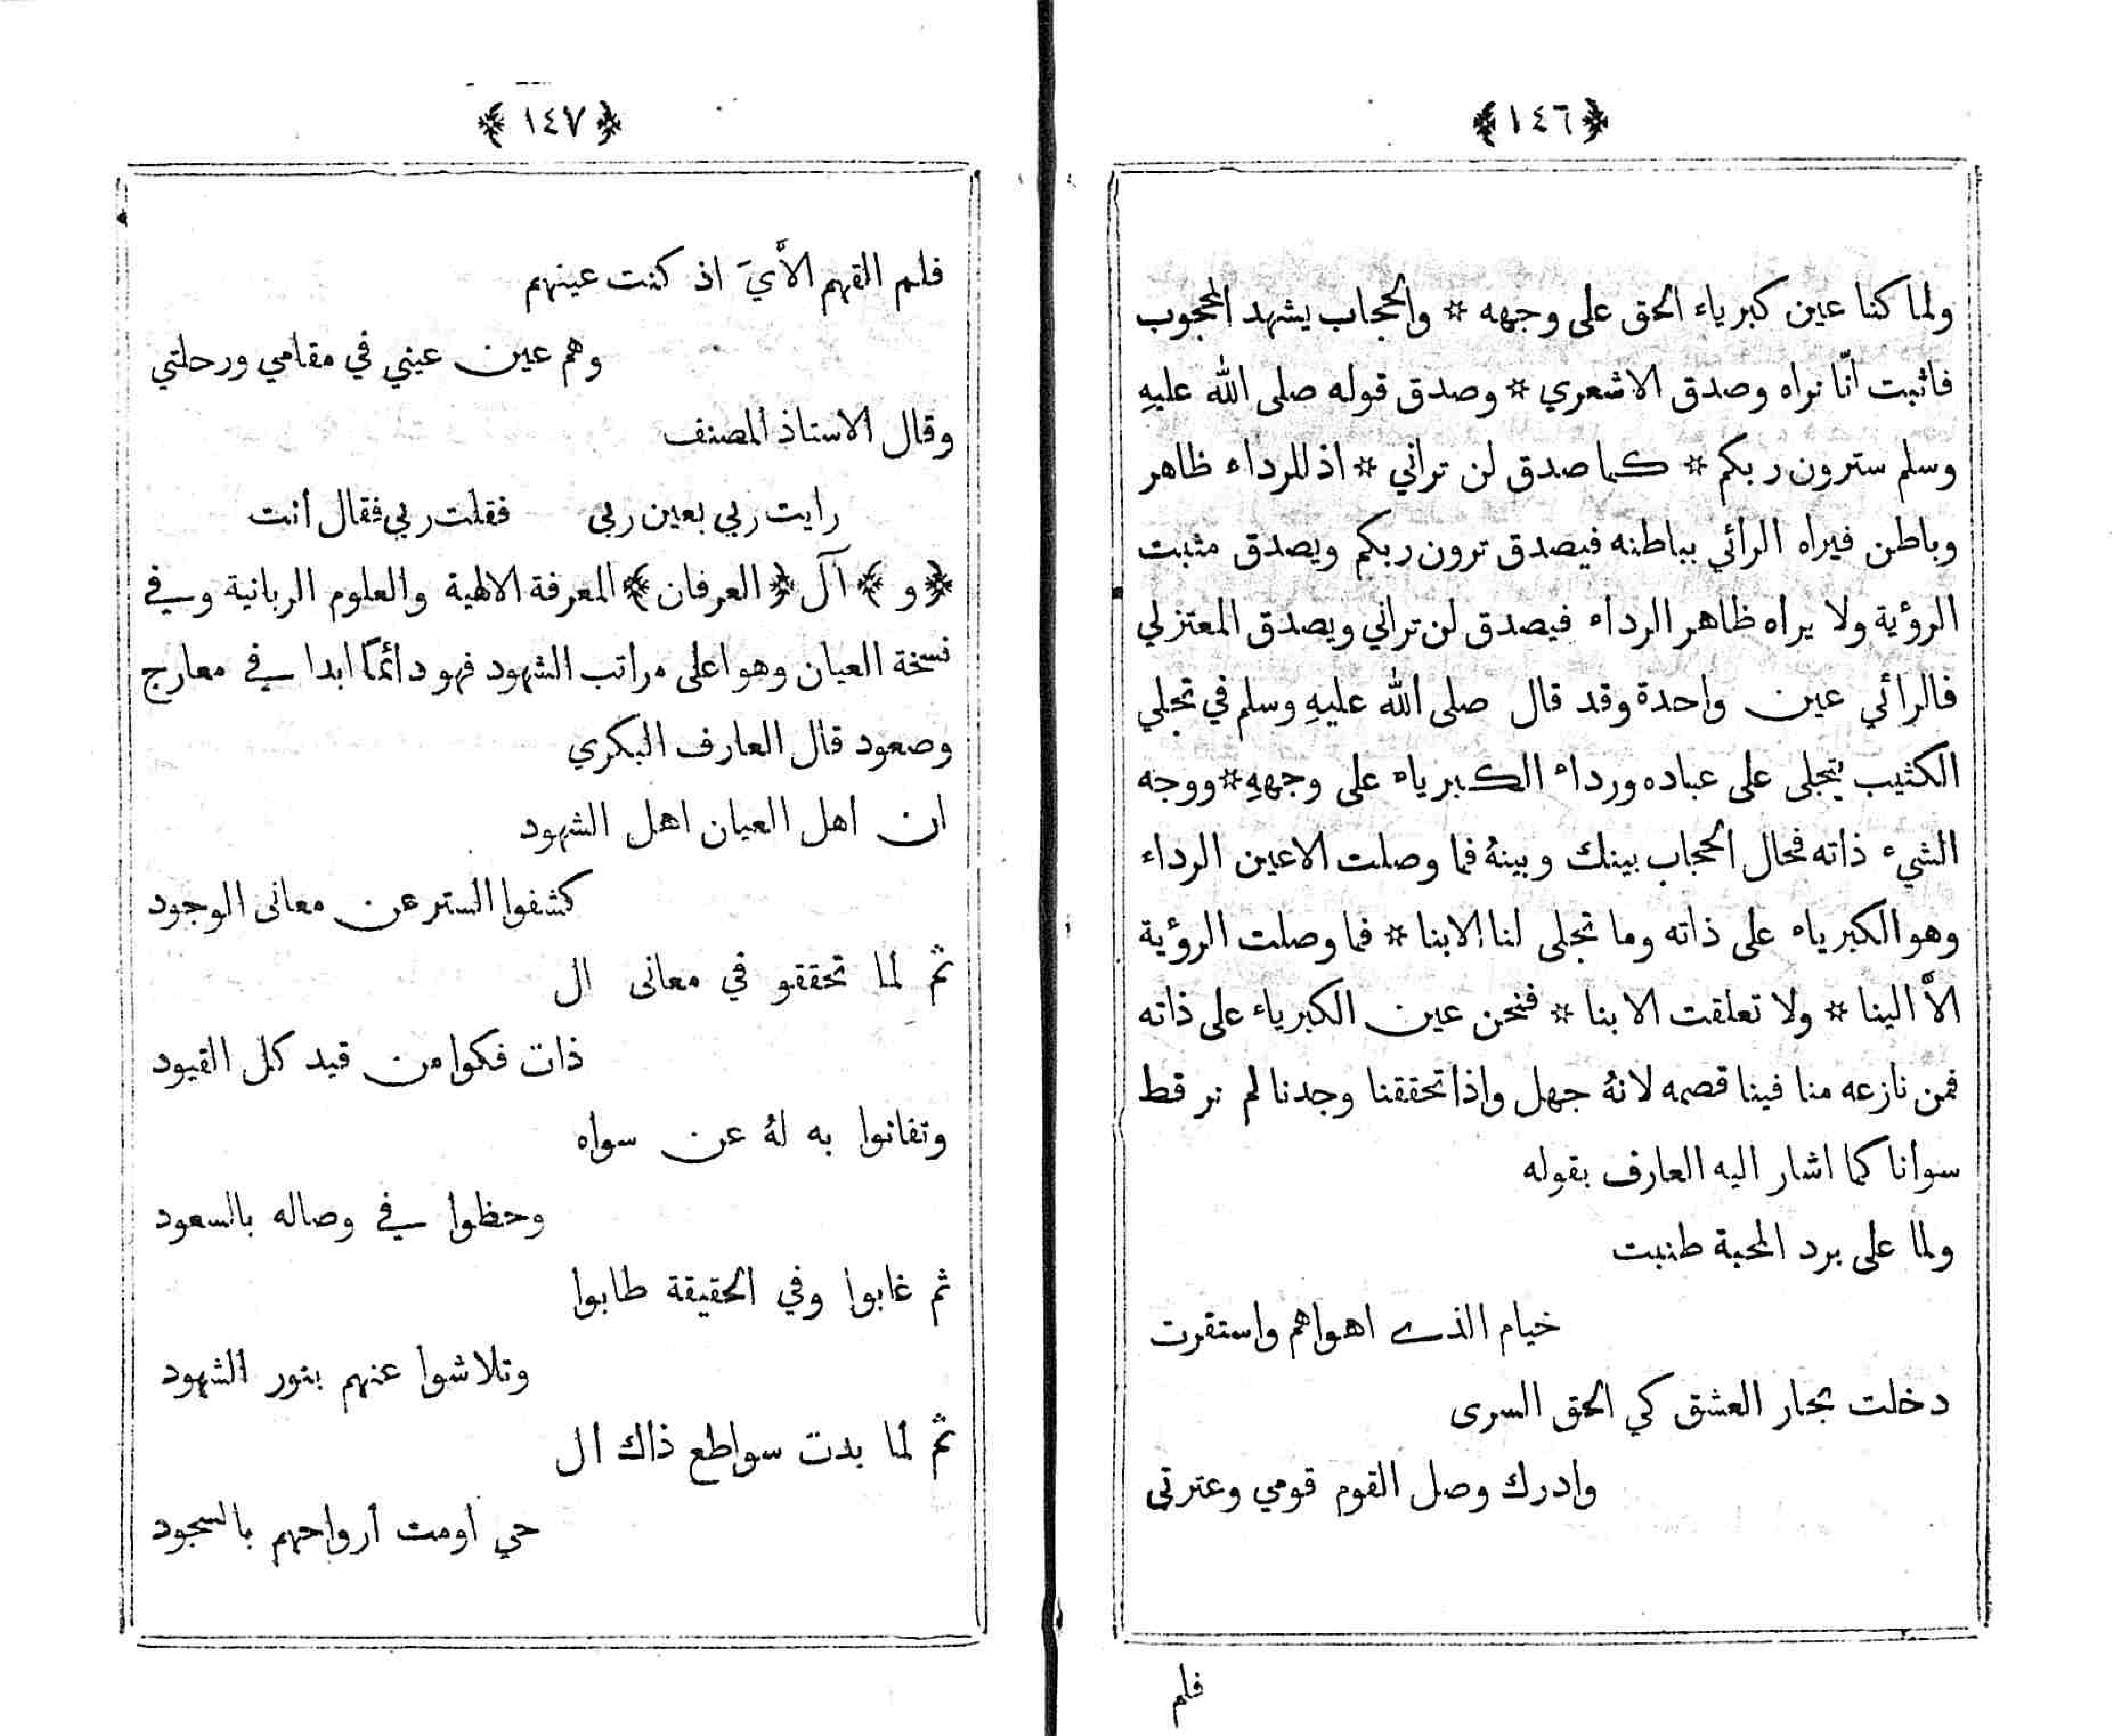 ﴿١٤٦﴾
ولما كنا عين كبرياء الحق على وجهه * والحجاب يشهد المحجوب
فاثبت انّا نراه وصدق الاشعري * وصدق قوله صلى الله عليهِ
وسلم سترون ربكم * كما صدق لن تراني * اذ للرداء ظاهر
وباطن فيراه الرائي بباطنه فيصدق ترون ربكم ويصدق مثبت
الرؤية ولا يراه ظاهر الرداء فيصدق لن تراني ويصدق المعتزلي
فالرائي عين واحدة وقد قال صلى الله عليهِ وسلم في تجلي
الكثيب يتجلى على عباده ورداء الكبرياء على وجههِ * ووجه
الشيء ذاته فحال الحجاب بينك وبينهُ فما وصلت الاعين الرداء
وهو الكبرياء على ذاته وما تجلى لنا الابنا * فما وصلت الرؤية
الاَّ الينا * ولا تعلقت الا بنا * فنحن عين الكبرياء على ذاته
فمن نازعه منا فينا قصمه لانهُ جهل واذا تحققنا وجدنا لم نر قط
سوانا كما اشار اليه العارف بقوله
ولما على برد المحبة طنبت
خيام الذي اهواهم واستقرت
دخلت بجار العشق كي الحق السرى
وادرك وصل القوم قومي وعترتى
فلم
﴿١٤٧﴾
فلم القهم الاَّيَ اذ كنت عينهم
وهم عين عيني في مقامي ورحلتي
وقال الاستاذ المصنف
رايت ربي بعين ربى فقلت ربي فقال أنت
﴿و﴾ آل ﴿العرفان﴾ المعرفة الالهية والعلوم الربانية وفي
نسخة العيان وهو اعلى مراتب الشهود فهو دائمًا ابدا في معارج
وصعود قال العارف البكري
ان اهل العيان اهل الشهود
كشفوا الستر عن معانى الوجود
ثم لما تحققو في معانى ال
ذات فكوا من قيد كل القيود
وتفانوا به لهُ عن سواه
وحظوا في وصاله بالسعود
ثم غابوا وفي الحقيقة طابوا
وتلاشوا عنهم بنور الشهود
ثم لما بدت سواطع ذاك ال
حي اومت أرواحهم بالسجود